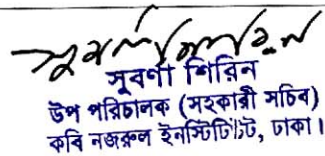 সুবর্ণা শিরিন
উপ পরিচালক (সহকারী সচিব)
কবি নজরুল ইনস্টিটিউট, ঢাকা।